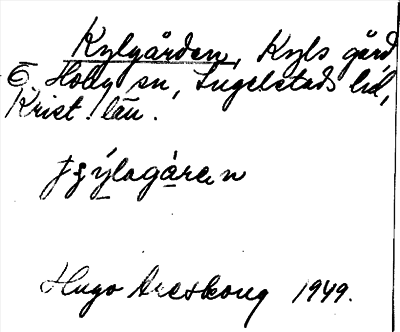 Kylgården, Kyls gård
Ö. Hoby sn, Ingelstads hd,
Krist. län.
Hugo Areskoug 1949.